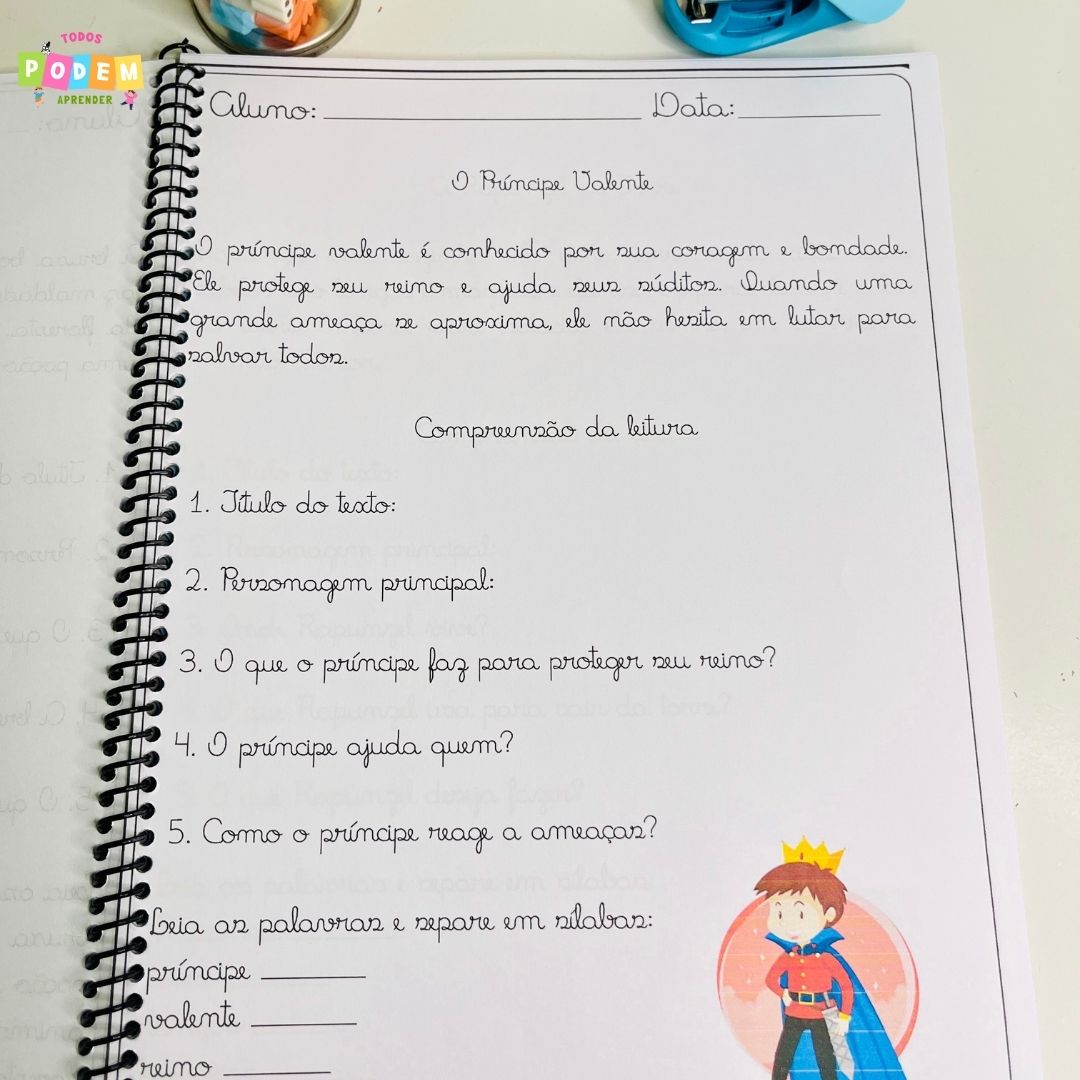 TODOS
PODEM
APRENDER
Aluno: ____________ Data: ____________
O Príncipe Valente
O príncipe valente é conhecido por sua coragem e bondade.
Ele protege seu reino e ajuda seus súditos. Quando uma
grande ameaça se aproxima, ele não hesita em lutar para
salvar todos.
Compreensão da leitura
1. Título do texto:
2. Personagem principal:
3. O que o príncipe faz para proteger seu reino?
4. O príncipe ajuda quem?
5. Como o príncipe reage a ameaças?
Leia as palavras e separe em sílabas:
príncipe ________
valente ________
reino ________